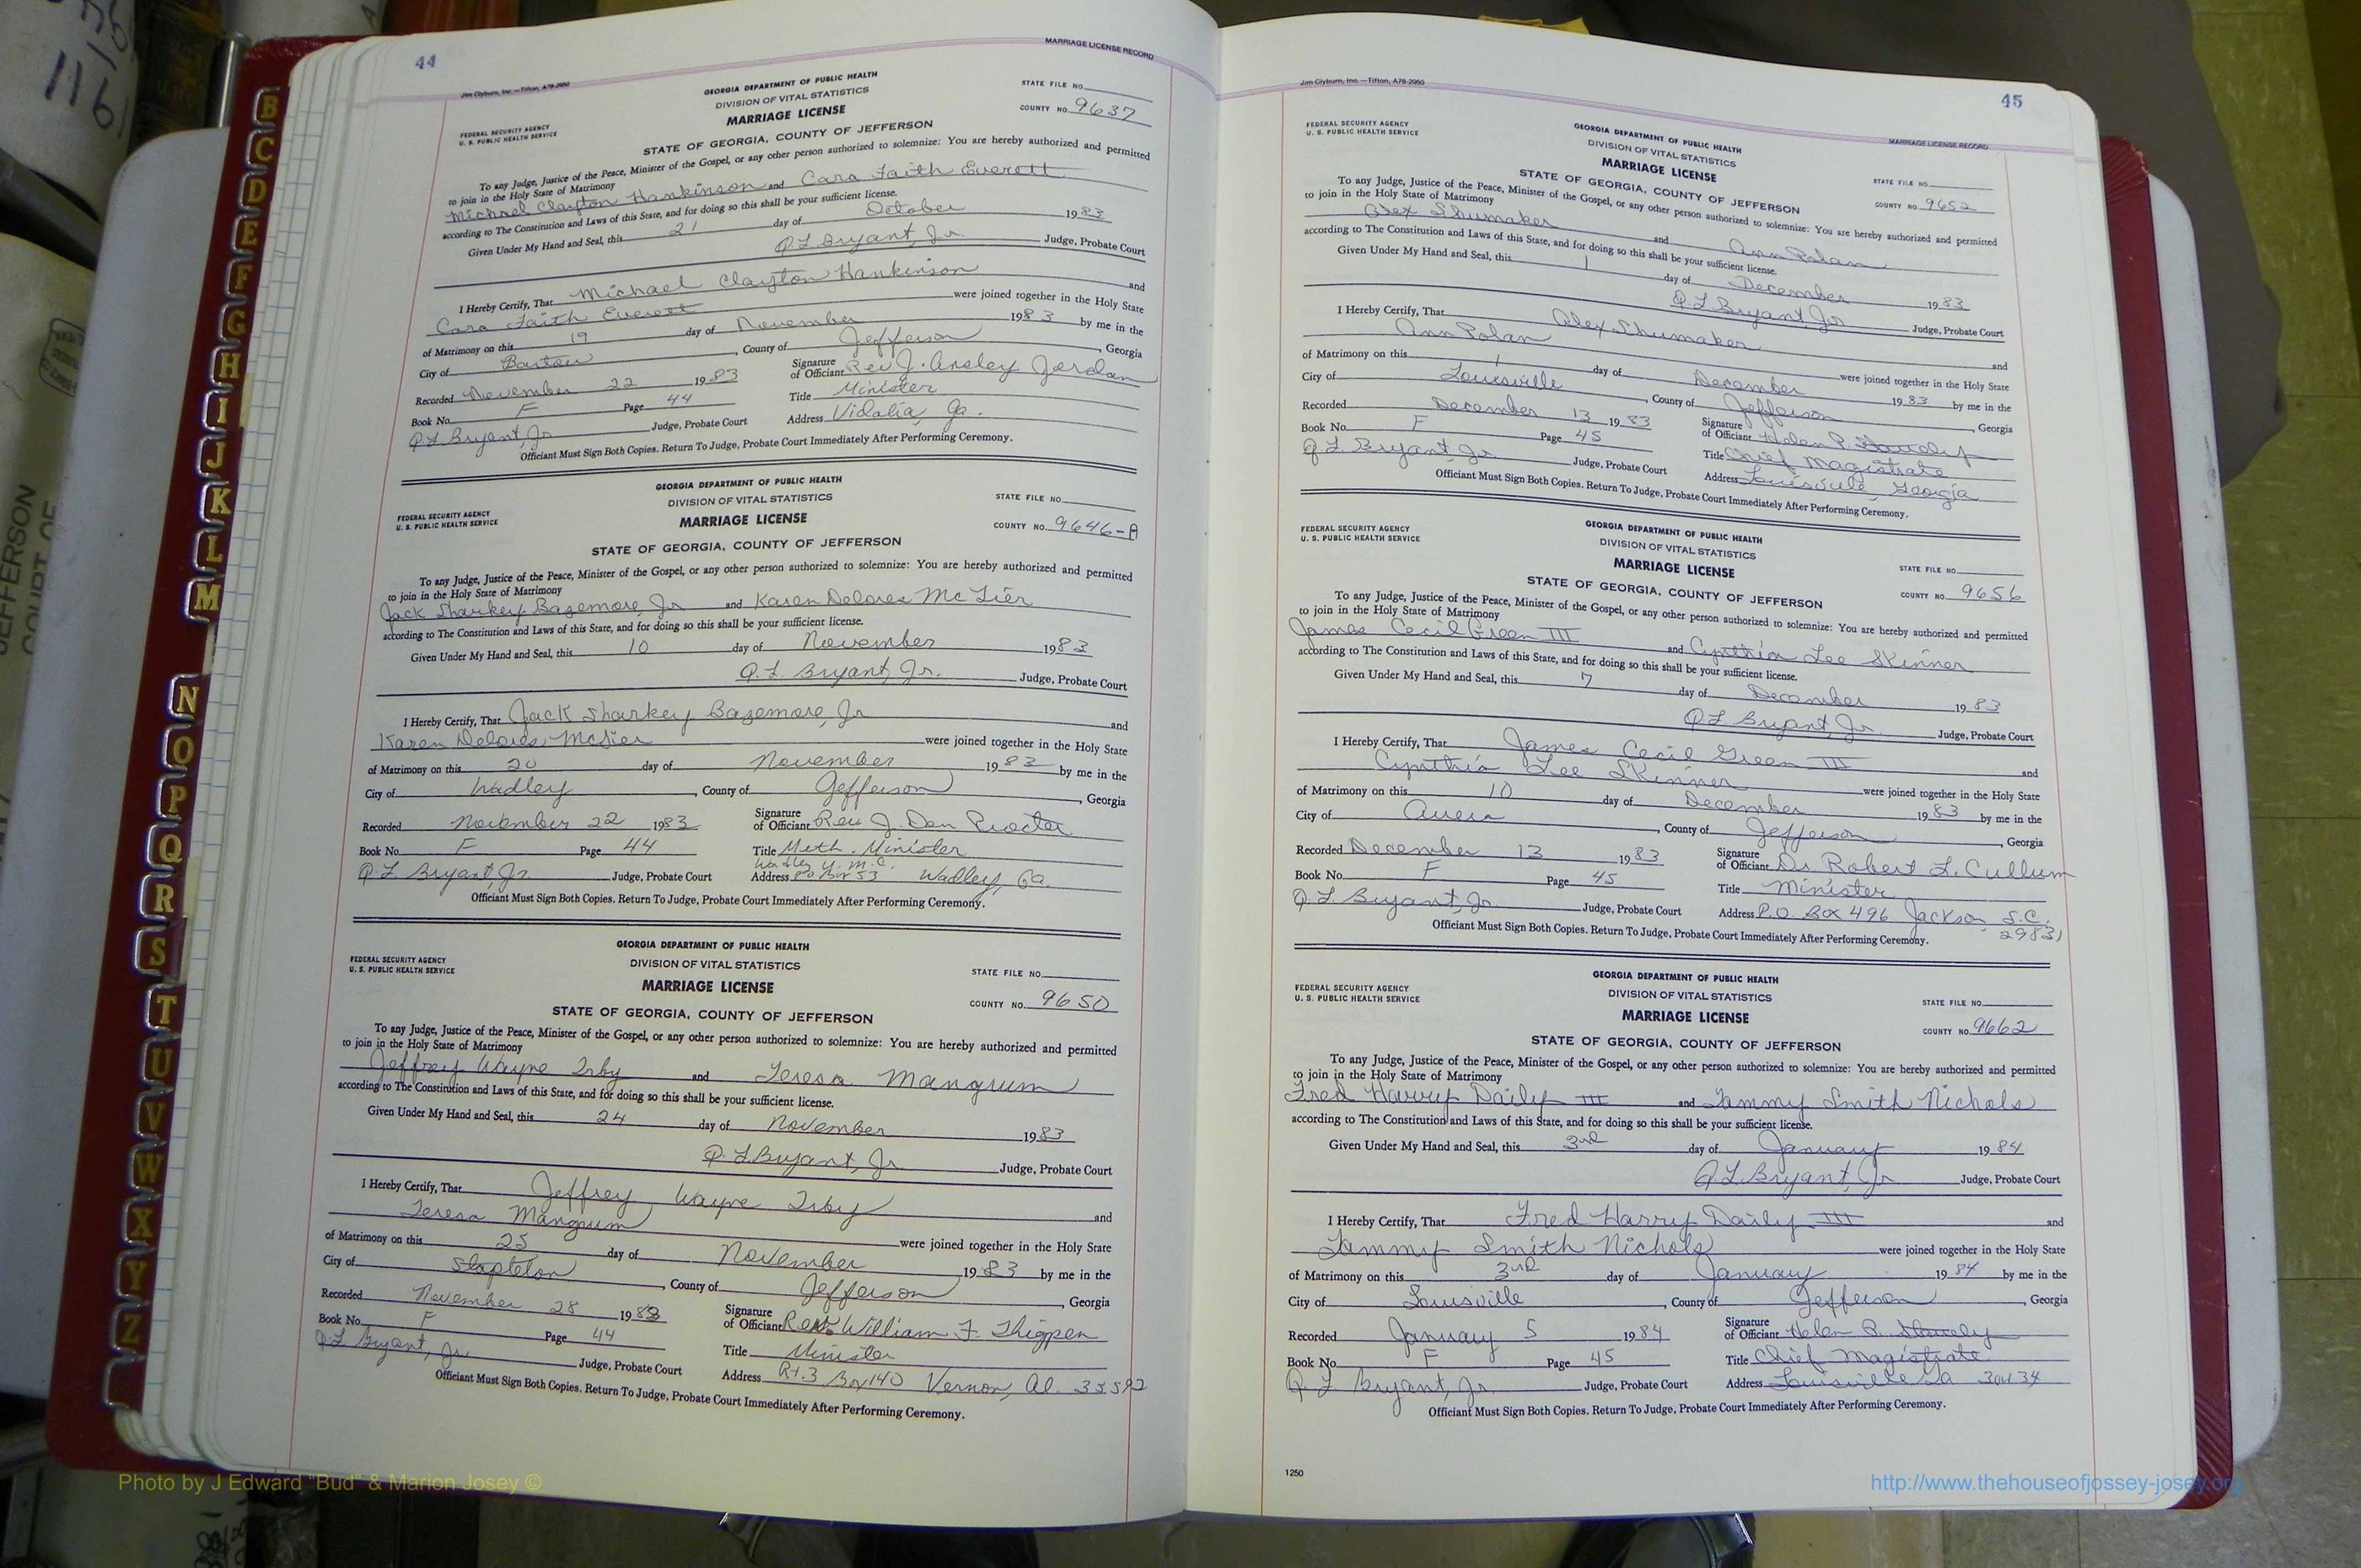 44
MARRIAGE LICENSE RECORD
Jim Clyburn, Inc.—Tifton, A78-2960
GEORGIA DEPARTMENT OF PUBLIC HEALTH
DIVISION OF VITAL STATISTICS
MARRIAGE LICENSE
STATE FILE NO.
COUNTY NO. 9637
FEDERAL SECURITY AGENCY
U. S. PUBLIC HEALTH SERVICE
STATE OF GEORGIA, COUNTY OF JEFFERSON
To any Judge, Justice of the Peace, Minister of the Gospel, or any other person authorized to solemnize: You are hereby authorized and permitted
to join in the Holy State of Matrimony
Michael Clayton Hankinson and Cara Faith Everett
according to The Constitution and Laws of this State, and for doing so this shall be your sufficient license.
Given Under My Hand and Seal, this 21 day of October 1983
Q L Bryant, Jr. Judge, Probate Court
I Hereby Certify, That Michael Clayton Hankinson and
Cara Faith Everett were joined together in the Holy State
of Matrimony on this 19 day of November 1983 by me in the
City of , County of Jefferson , Georgia
Recorded November 22 1983 Signature of Officiant Rev J. Ansley Jordan
Book No. F Page 44 Title Minister
Q L Bryant, Jr Judge, Probate Court Address Vidalia, Ga.
Officiant Must Sign Both Copies. Return To Judge, Probate Court Immediately After Performing Ceremony.
GEORGIA DEPARTMENT OF PUBLIC HEALTH
DIVISION OF VITAL STATISTICS
MARRIAGE LICENSE
FEDERAL SECURITY AGENCY
U. S. PUBLIC HEALTH SERVICE
STATE FILE NO.
COUNTY NO. 9646-A
STATE OF GEORGIA, COUNTY OF JEFFERSON
To any Judge, Justice of the Peace, Minister of the Gospel, or any other person authorized to solemnize: You are hereby authorized and permitted
to join in the Holy State of Matrimony
Jack Sharkey Bazemore, Jr and Karen Delores McTier
according to The Constitution and Laws of this State, and for doing so this shall be your sufficient license.
Given Under My Hand and Seal, this 10 day of November 1983
Q. L. Bryant, Jr. Judge, Probate Court
I Hereby Certify, That Jack Sharkey Bazemore, Jr and
Karen Delores McTier were joined together in the Holy State
of Matrimony on this 20 day of November 1983 by me in the
City of Wadley , County of Jefferson , Georgia
Recorded November 22 1983 Signature of Officiant Rev J. Dan Procter
Book No. F Page 44 Title Meth. Minister
Q L Bryant, Jr Judge, Probate Court Address Wadley U. M. C. PO Box 53 Wadley, Ga.
Officiant Must Sign Both Copies. Return To Judge, Probate Court Immediately After Performing Ceremony.
GEORGIA DEPARTMENT OF PUBLIC HEALTH
DIVISION OF VITAL STATISTICS
MARRIAGE LICENSE
FEDERAL SECURITY AGENCY
U. S. PUBLIC HEALTH SERVICE
STATE FILE NO.
COUNTY NO. 9650
STATE OF GEORGIA, COUNTY OF JEFFERSON
To any Judge, Justice of the Peace, Minister of the Gospel, or any other person authorized to solemnize: You are hereby authorized and permitted
to join in the Holy State of Matrimony
Jeffrey Wayne Irby and Teresa Mangrum
according to The Constitution and Laws of this State, and for doing so this shall be your sufficient license.
Given Under My Hand and Seal, this 24 day of November 1983
Q. L Bryant, Jr Judge, Probate Court
I Hereby Certify, That Jeffrey Wayne Irby and
Teresa Mangrum were joined together in the Holy State
of Matrimony on this 25 day of November 1983 by me in the
City of Stapleton , County of Jefferson , Georgia
Recorded November 28 1983 Signature of Officiant Rev. William F. Thigpen
Book No. F Page 44 Title Minister
Q L Bryant, Jr. Judge, Probate Court Address Rt.3 Box 140 Vernon, Al. 35592
Officiant Must Sign Both Copies. Return To Judge, Probate Court Immediately After Performing Ceremony.
45
Jim Clyburn, Inc.—Tifton, A78-2960
MARRIAGE LICENSE RECORD
FEDERAL SECURITY AGENCY
U. S. PUBLIC HEALTH SERVICE
GEORGIA DEPARTMENT OF PUBLIC HEALTH
DIVISION OF VITAL STATISTICS
MARRIAGE LICENSE
STATE OF GEORGIA, COUNTY OF JEFFERSON
STATE FILE NO.
COUNTY NO. 9652
To any Judge, Justice of the Peace, Minister of the Gospel, or any other person authorized to solemnize: You are hereby authorized and permitted
to join in the Holy State of Matrimony
Alex Shumaker and Ann Polan
according to The Constitution and Laws of this State, and for doing so this shall be your sufficient license.
Given Under My Hand and Seal, this 1 day of December 1983
Q L Bryant, Jr Judge, Probate Court
I Hereby Certify, That Alex Shumaker and
Ann Polan were joined together in the Holy State
of Matrimony on this 1 day of December 1983 by me in the
City of Louisville , County of Jefferson , Georgia
Recorded December 13 1983 Signature of Officiant Helen P.
Book No. F Page 45 Title Chief Magistrate
Q L Bryant, Jr. Judge, Probate Court Address Louisville, Georgia
Officiant Must Sign Both Copies. Return To Judge, Probate Court Immediately After Performing Ceremony.
FEDERAL SECURITY AGENCY
U. S. PUBLIC HEALTH SERVICE
GEORGIA DEPARTMENT OF PUBLIC HEALTH
DIVISION OF VITAL STATISTICS
MARRIAGE LICENSE
STATE OF GEORGIA, COUNTY OF JEFFERSON
STATE FILE NO.
COUNTY NO. 9656
To any Judge, Justice of the Peace, Minister of the Gospel, or any other person authorized to solemnize: You are hereby authorized and permitted
to join in the Holy State of Matrimony
James Cecil Green III and Cynthia Lee Skinner
according to The Constitution and Laws of this State, and for doing so this shall be your sufficient license.
Given Under My Hand and Seal, this 7 day of December 1983
Q L Bryant, Jr. Judge, Probate Court
I Hereby Certify, That James Cecil Green III and
Cynthia Lee Skinner were joined together in the Holy State
of Matrimony on this 10 day of December 1983 by me in the
City of Avera , County of Jefferson , Georgia
Recorded December 13 1983 Signature of Officiant Dr Robert L. Cullum
Book No. F Page 45 Title Minister
Q. L. Bryant, Jr. Judge, Probate Court Address P.O. Box 496 Jackson, S.C. 29831
Officiant Must Sign Both Copies. Return To Judge, Probate Court Immediately After Performing Ceremony.
FEDERAL SECURITY AGENCY
U. S. PUBLIC HEALTH SERVICE
GEORGIA DEPARTMENT OF PUBLIC HEALTH
DIVISION OF VITAL STATISTICS
MARRIAGE LICENSE
STATE OF GEORGIA, COUNTY OF JEFFERSON
STATE FILE NO.
COUNTY NO. 9662
To any Judge, Justice of the Peace, Minister of the Gospel, or any other person authorized to solemnize: You are hereby authorized and permitted
to join in the Holy State of Matrimony
Fred Harry Daily III and Tammy Smith Nichols
according to The Constitution and Laws of this State, and for doing so this shall be your sufficient license.
Given Under My Hand and Seal, this 3rd day of January 1984
Q L Bryant, Jr Judge, Probate Court
I Hereby Certify, That Fred Harry Daily III and
Tammy Smith Nichols were joined together in the Holy State
of Matrimony on this 3rd day of January 1984 by me in the
City of Louisville , County of Jefferson , Georgia
Recorded January 5 1984 Signature of Officiant Helen P.
Book No. F Page 45 Title Chief Magistrate
Q L Bryant, Jr. Judge, Probate Court Address Louisville Ga 30434
Officiant Must Sign Both Copies. Return To Judge, Probate Court Immediately After Performing Ceremony.
1250
B
C
D
E
F
G
H
I
J
K
L
M
N
O
P
Q
R
S
T
U
V
W
X
Y
Z
JEFFERSON
COURT OF
Photo by J Edward "Bud" & Marion Josey ©
http://www.thehouseofjossey-josey.org